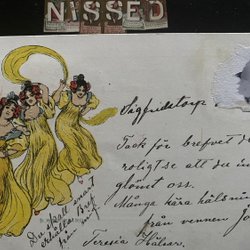 NISSED
Sigfridstorp
Tack för brefvet de
roligt se att du in
glömt oss.
Många kära hälsnin
från vennen
Teresia Hälsar.
Du skall snart
erhålla Bref
från mig